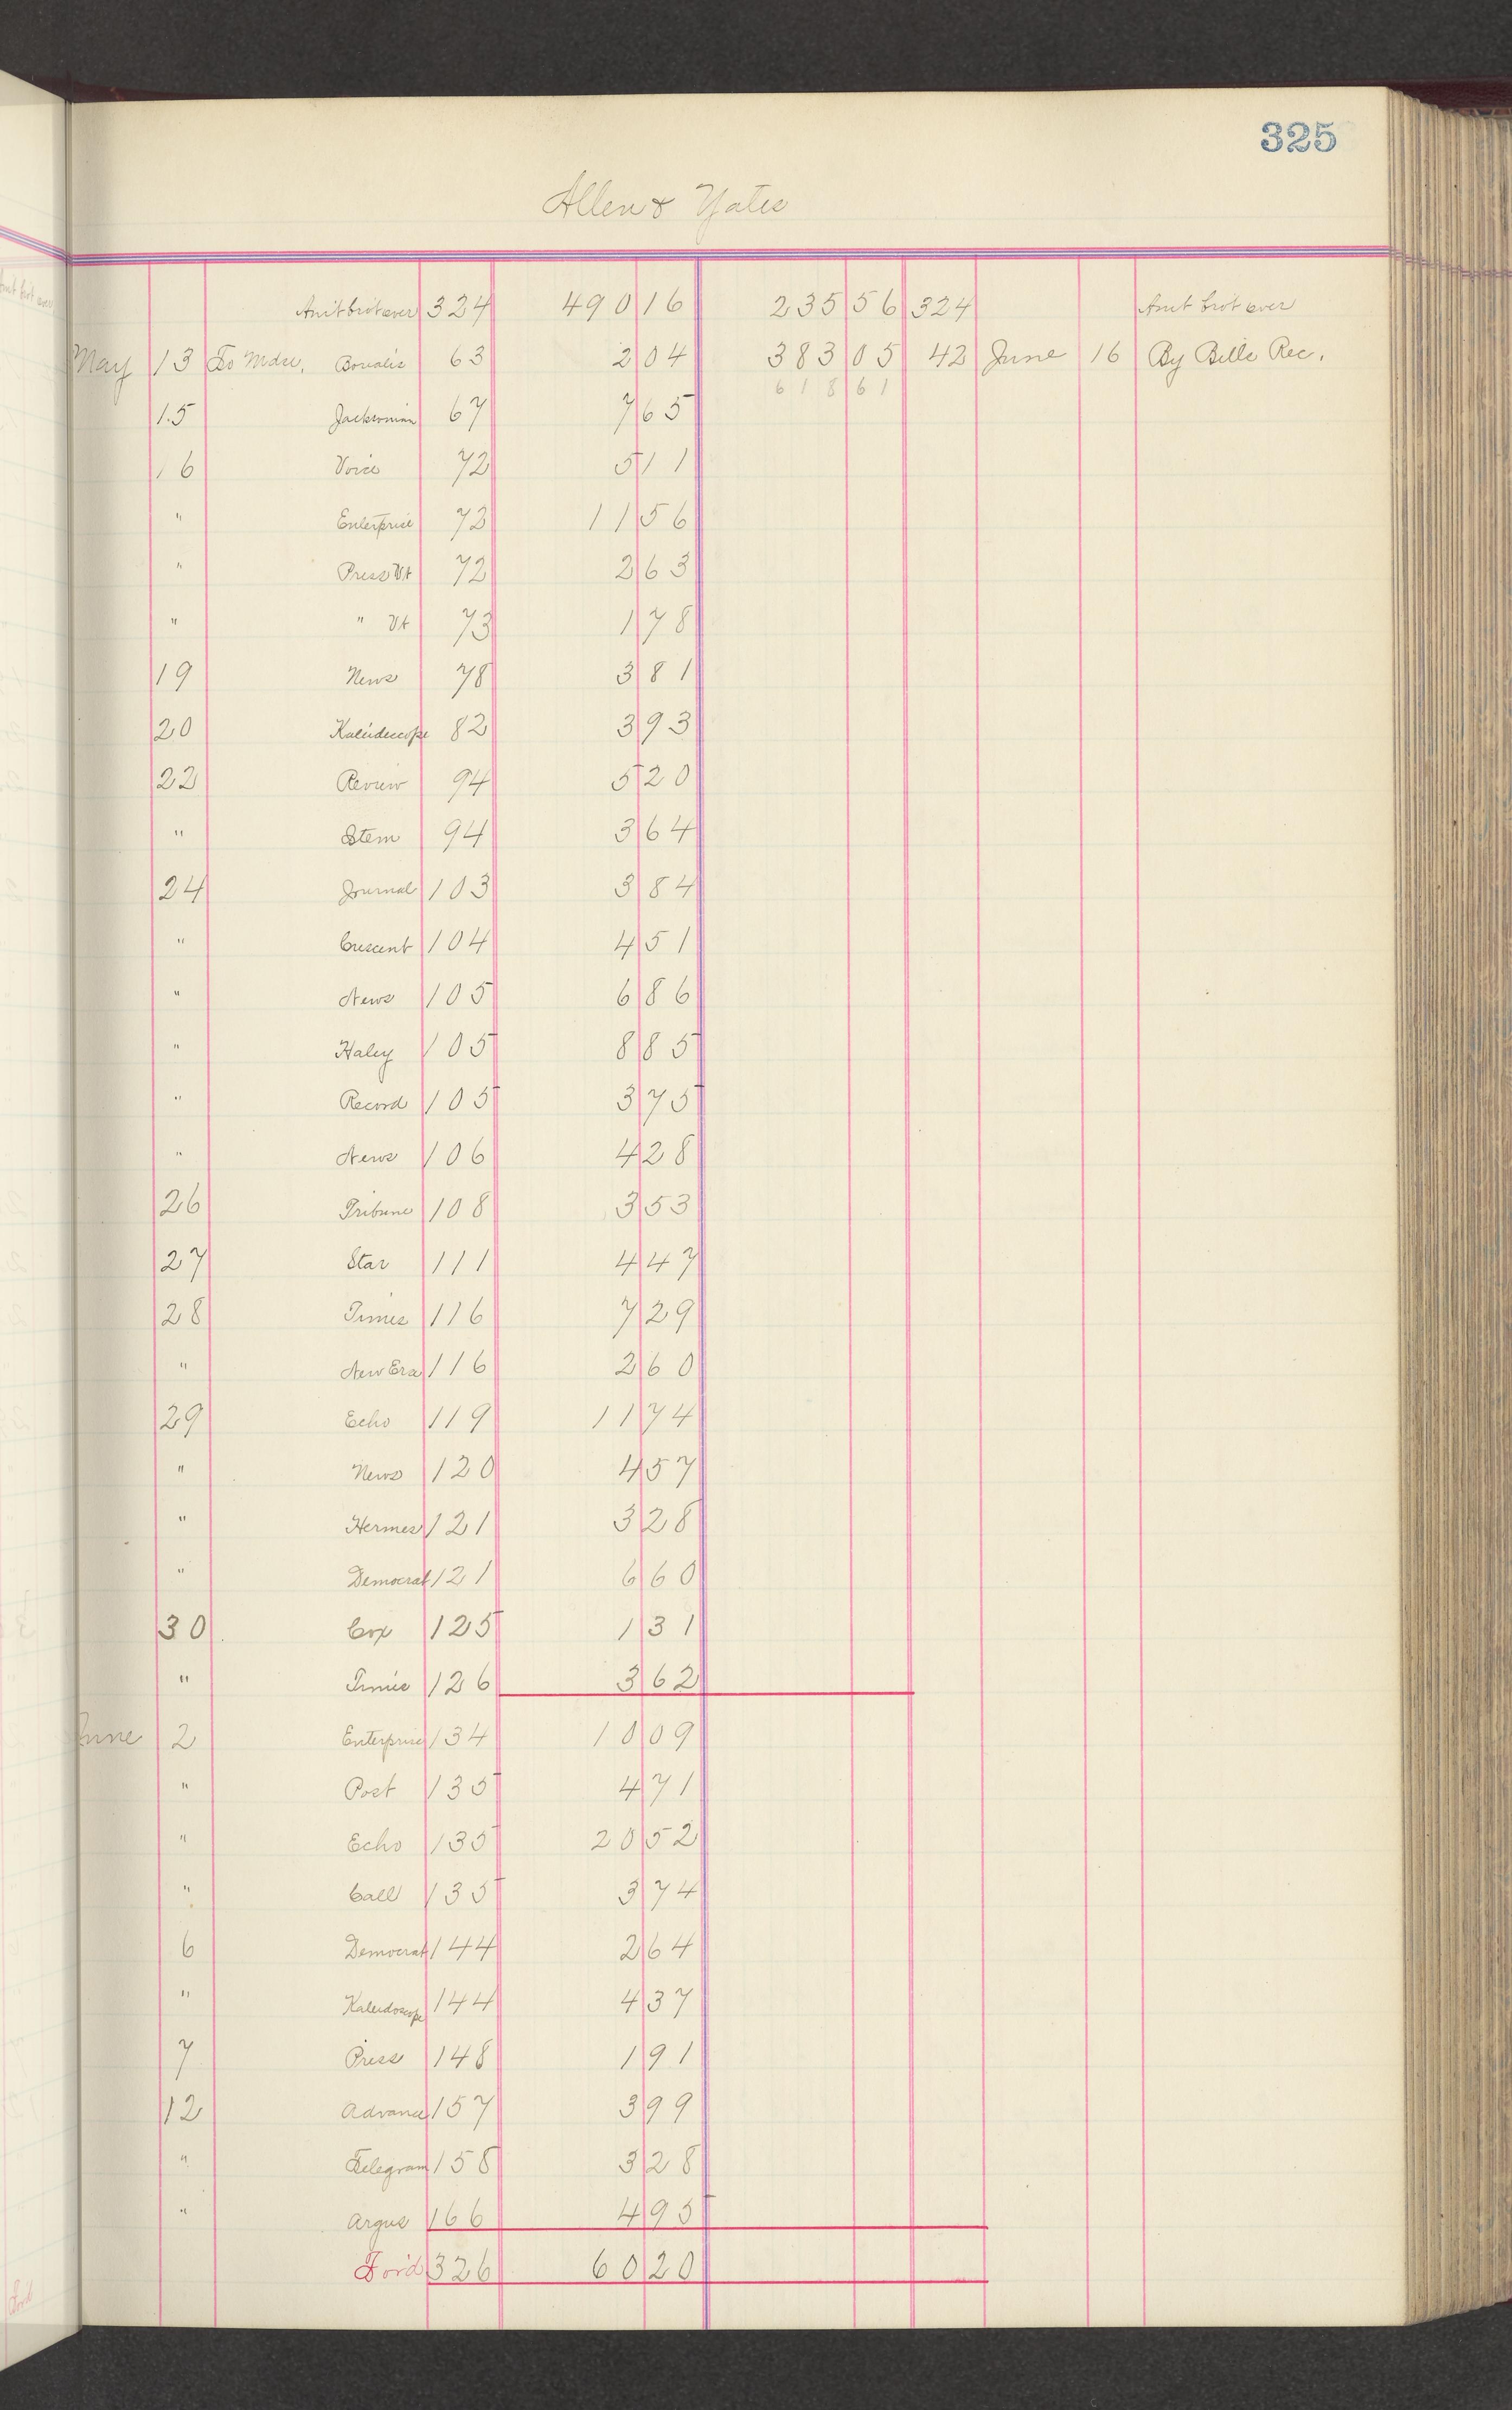 325
Allen & Yates
Amt brot over 324 490 16 235 56 324 Amt brot over
May 13 To Mdse, Borealis 63 2 04 383 05 42 June 16 By Bills Rec.
618 61
15 Jacksonian 67 7 65
16 Voice 72 5 11
" Enterprise 72 11 56
" Press Vt 72 2 63
" " Vt 73 1 78
19 News 78 3 81
20 Kaleidescope 82 3 93
22 Review 94 5 20
" Stem 94 3 64
24 Journal 103 3 84
" Crescent 104 4 51
" News 105 6 86
" Haley 105 8 85
" Record 105 3 75
" News 106 4 28
26 Tribune 108 3 53
27 Star 111 4 47
28 Times 116 7 29
" New Era 116 2 60
29 Echo 119 11 74
" News 120 4 57
" Hermes 121 3 28
" Democrat 121 6 60
30 Cox 125 1 31
" Times 126 3 62
June 2 Enterprise 134 10 09
" Post 135 4 71
" Echo 135 20 52
" Call 135 3 74
6 Democrat 144 2 64
" Kaleidoscope 144 4 37
7 Press 148 1 91
12 Advance 157 3 99
" Telegram 158 3 28
" Argus 166 4 95
For'd 326 60 20